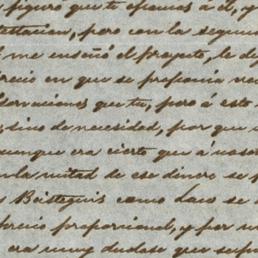 figuró que te oponias á él, y
testacion, pero con la segun
me enseñó el proyecto, le de
precio en que se proponia ve
observaciones que tu, pero á este
sino de necesidad, por que
aunque era cierto que á nosot
con la mitad de ese dinero se p
Basteguis como Laco se
precio proporcional, y por u
era muy dudoso que se pu